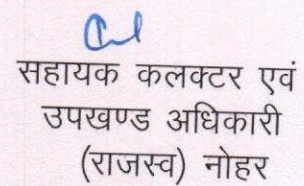 सहायक कलक्टर एवं
उपखण्ड अधिकारी
(राजस्व) नोहर